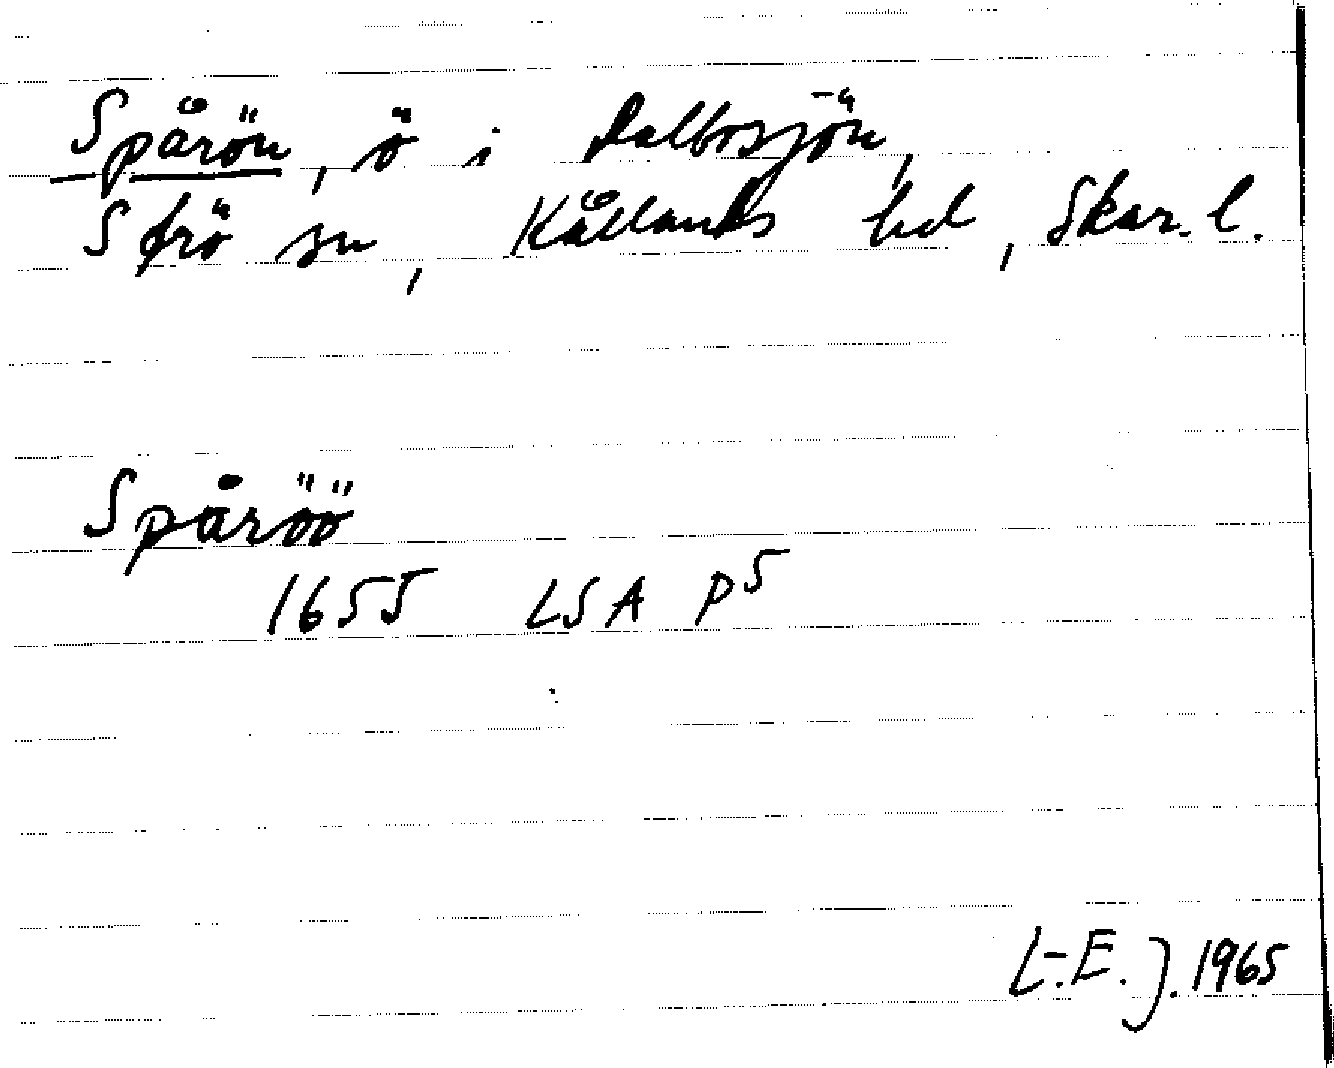 Spårön, ö i Dalbosjön,
Sfrö sn, Kållands hd, Skar. l.
Spåröö
1655 LSA P5
L-E. J. 1965